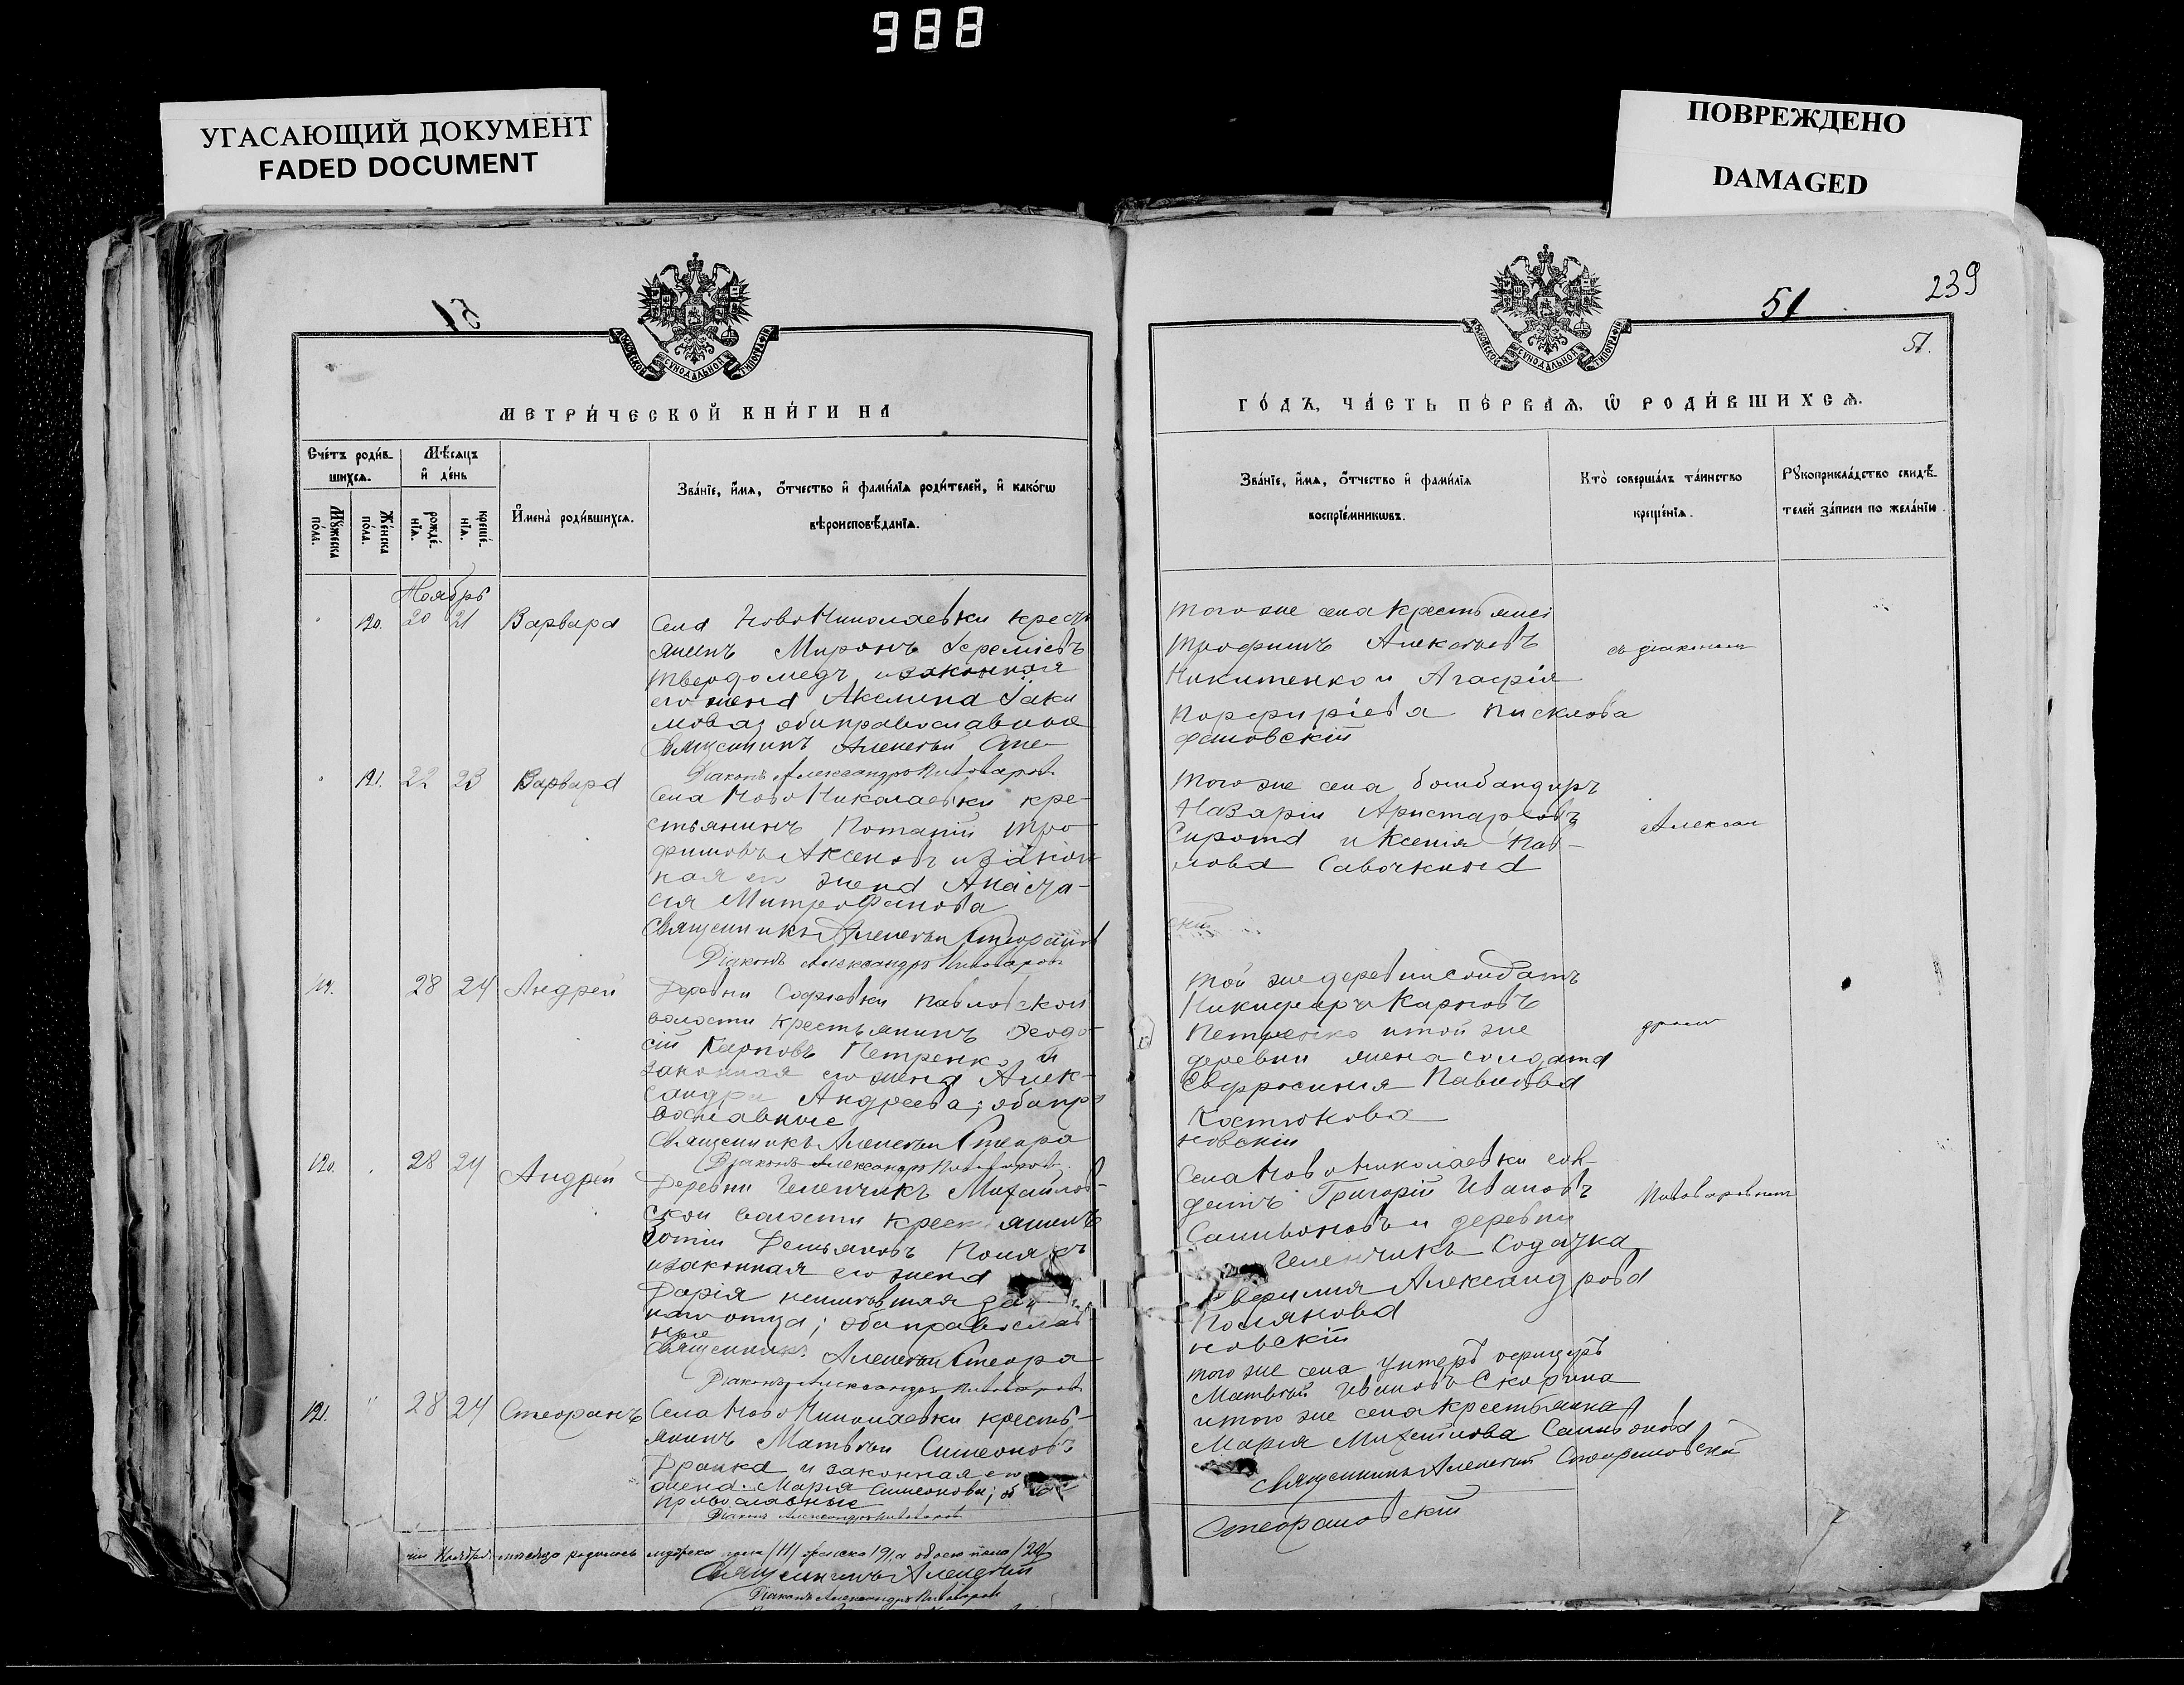 988
УГАСАЮЩИЙ ДОКУМЕНТ
FADED DOCUMENT
ПОВРЕЖДЕНО
DAMAGED
51
239
51.
МЕТРИ́ЧЕСКОЙ КНИ́ГИ НА
Сче́тъ роди́вшихсѧ.
Мѣ́сяцъ и҆ де́нь
Мꙋ́жеска по́ла.
Же́нска по́ла.
рожде́нїѧ.
креще́нїѧ.
И҆мена̀ роди́вшихсѧ.
Зва́нїе, и҆́мѧ, ѻ҆́тчество и҆ фами́лїѧ роди́телей, и҆ како́гѡ
вѣроисповѣ́данїѧ.
ГО́ДЪ, ЧА́СТЬ ПЕ́РВАѦ, Ѽ РОДИ́ВШИХСѦ.
Зва́нїе, и҆́мѧ, ѻ҆́тчество и҆ фами́лїѧ
воспрїе́мникѡвъ.
Кто̀ соверша́лъ та́инство
креще́нїѧ.
Рꙋкоприкла́дство свидѣ́телей за́писи по жела́нїю
Ноябрь
120. 20 21 Варвара
Села Ново Николаевки кресть
янинъ Миронъ Іереміевъ
Твердомедъ и законная
его жена Акелина Іаки
мова; оба православные
Священникъ Алексѣй Сте-
Діаконъ Александръ Пивоваровъ
того же села крестьянин
Трофимъ Алексѣевъ
Никитенко и Агафія
ПорфиріеваПисклова
фановскій
съ діакономъ
121. 22 23 Варвара
Села Ново Николаевки кре-
стьянинъ Потапій Тро-
фимовъ Аксеновъ и закон
ная его жена Анаста-
сія Митрофанова
Священникъ Алексѣй Стефанов
Діаконъ Александръ Пивоваровъ
того же села бомбандиръ
Назарій Аристарховъ
Сирота и Ксенія Пав-
лова Савочкина
скій
Алексан
119. 28 24 Андрей
Деревни Софіевки Павловской
волости крестьянинъ Ѳеодо
сій Карповъ Петренко и
законная его жена Алек-
сандра Андреева; оба пра
вославные
Священникъ Алексѣй Стефа
Діаконъ Александръ Пивоваровъ
той же деревни солдатъ
Никифоръ Карповъ
Петренко и той же
деревни жена солдата
Евфросинія Павлова
Костюкова
новскій
дромъ
120. 28 24 Андрей
Деревни Геленчикъ Михайлов-
ской волости крестьянинъ
Зотій Демьяновъ Поляковъ
и законная его жена
Дарія неимѣвшая зак
наго отца; оба православ
ные
Священникъ Алексѣй Стефа
Діаконъ Александръ Пивоваровъ
Села Ново Николаевки сол
датъ Григорій Ивановъ
Сампьоновъ и деревни
Геленчикъ Солдатка
Александрова
Полякова
новскій
Пивоваровымъ
121. 28 24 Стефанъ
Села Ново Николаевки кресть-
янинъ Матвѣй Симеоновъ
и законная его
жена Марія Симеонова; об
православные
Діаконъ Александръ Пивоваровъ
того же села унтеръ офицеръ
Матвѣй Ивановъ Скорина
и того же села крестьянка
Марія Михайлова Сампьонова
Священникъ Алексѣй Стефановскій
Стефановскій
Ноября мѣсяца родилось мужеска пола /11/ женска /9/, а обоего пола /20/
Священникъ Алексѣй
Діаконъ Александръ Пивоваровъ